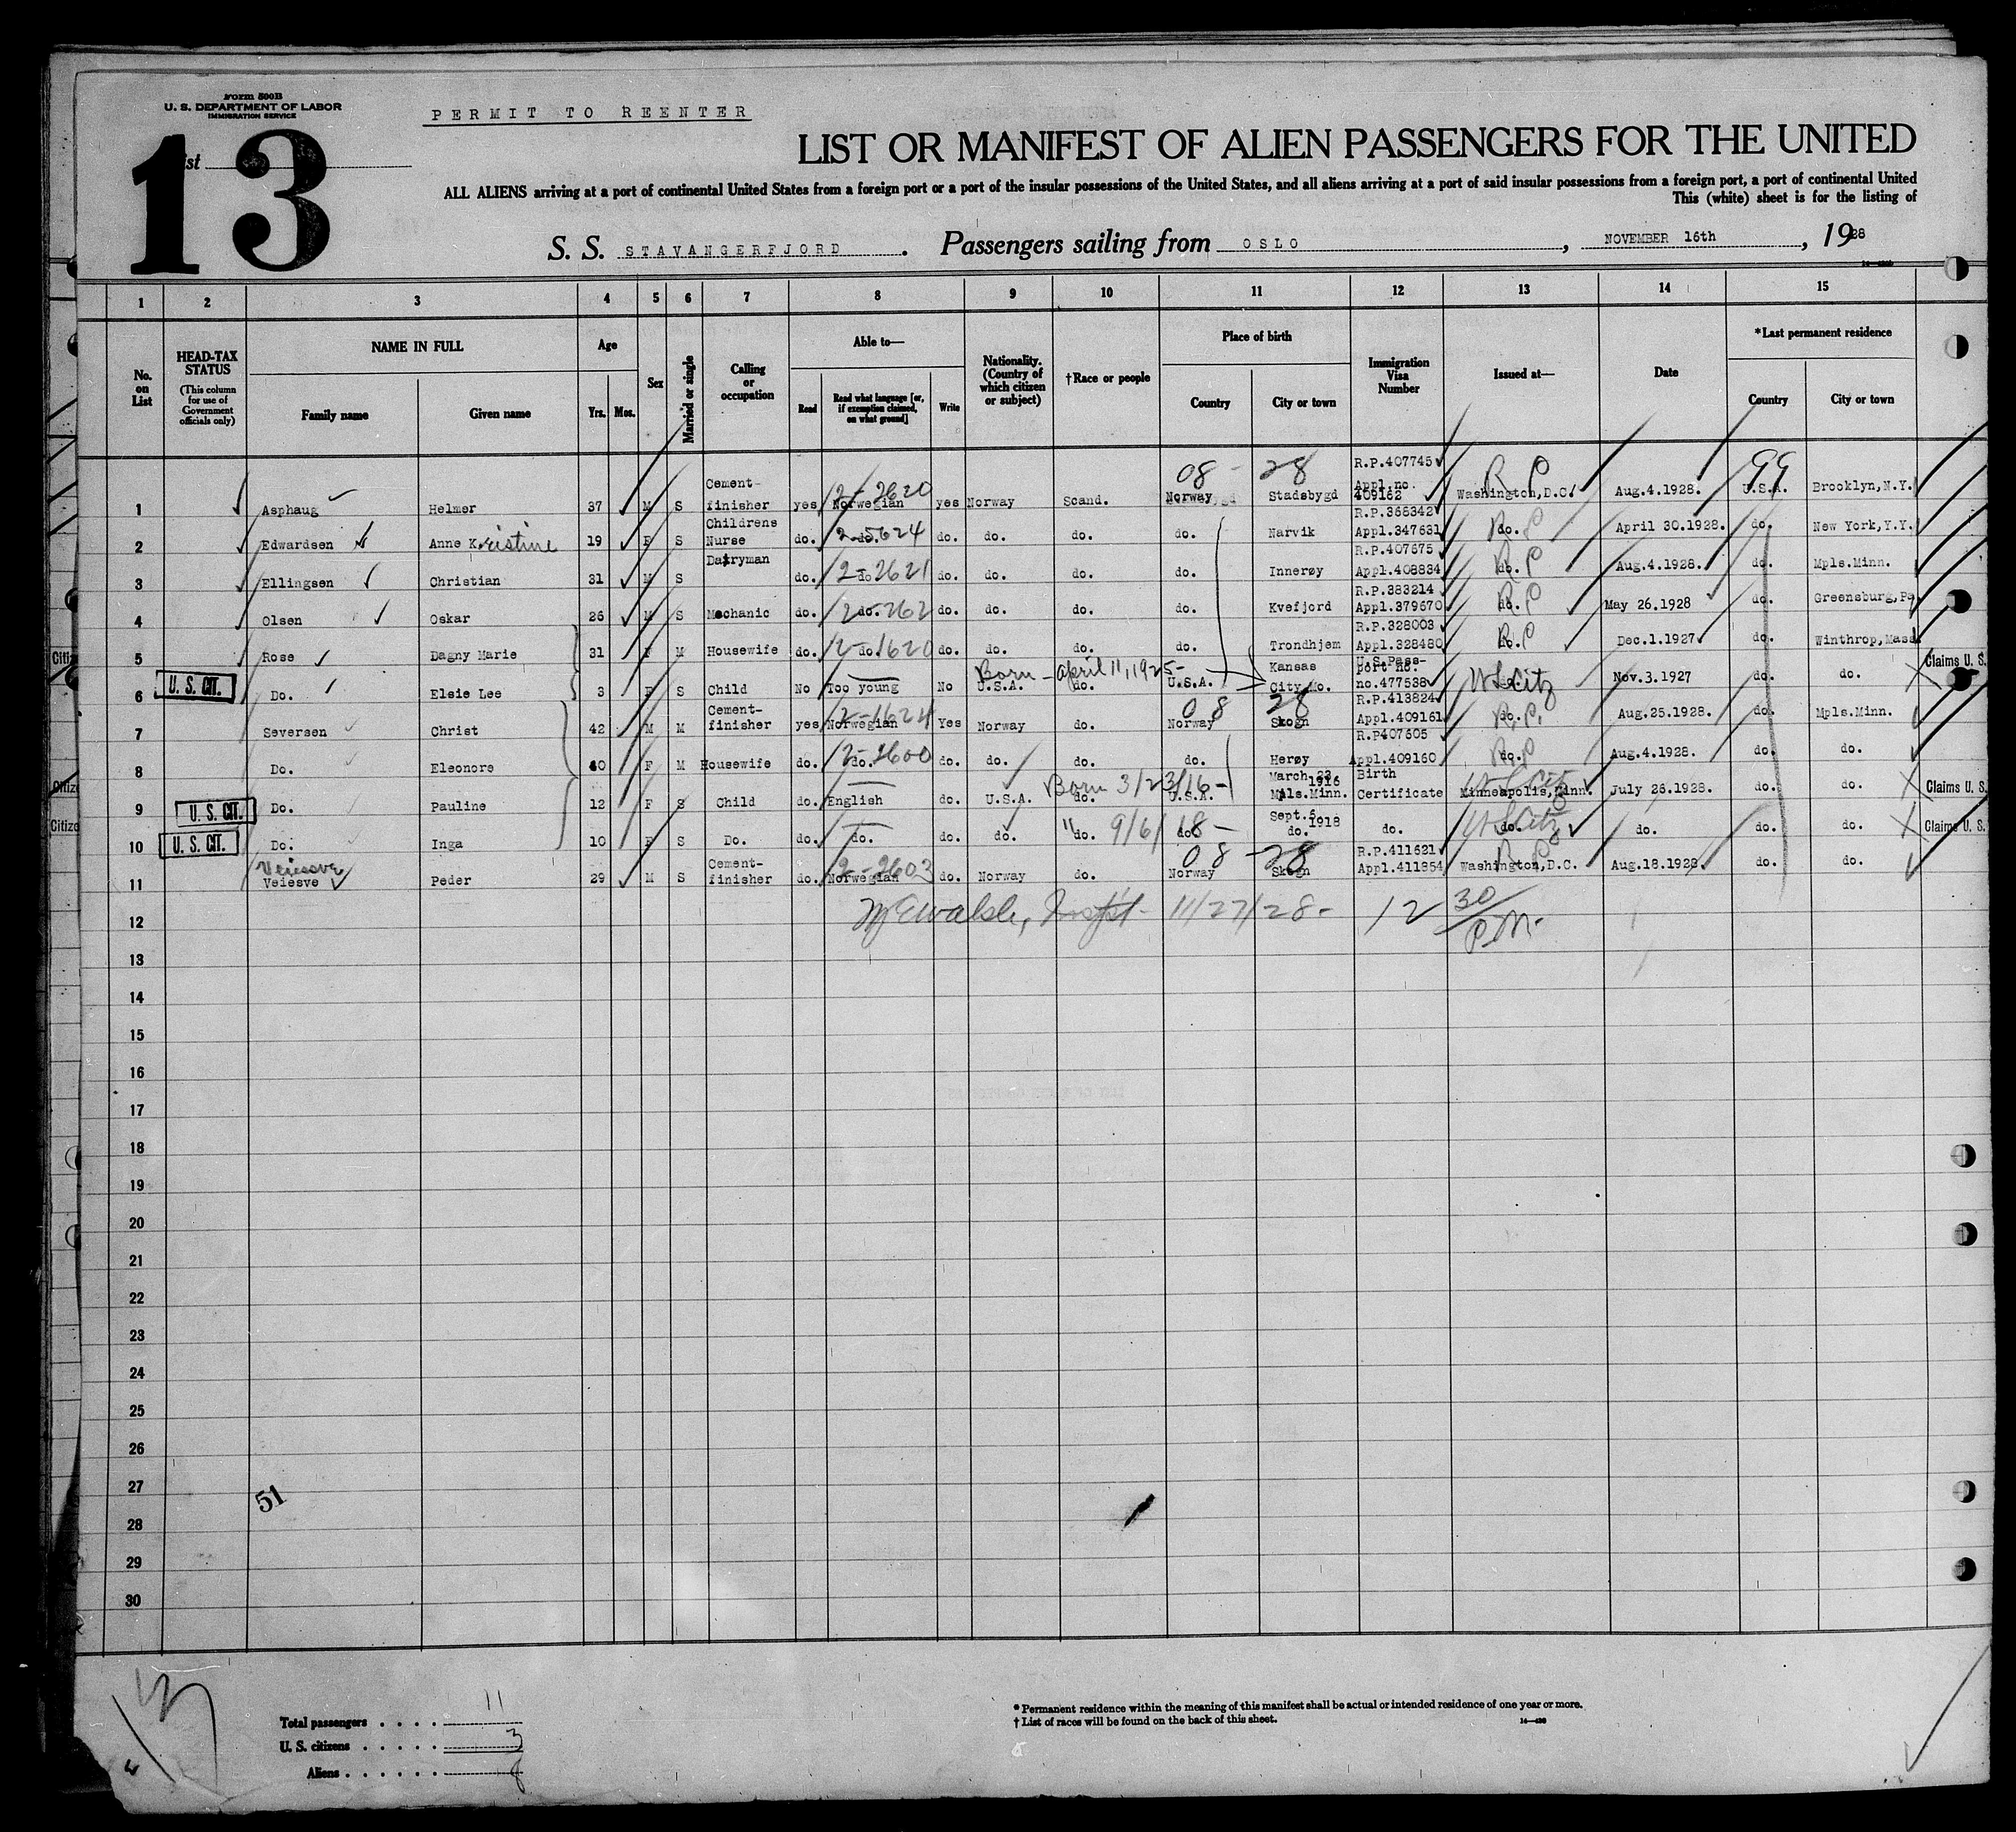 Form 500B
U. S. DEPARTMENT OF LABOR
IMMIGRATION SERVICE
PERMIT TO REENTER
List
13
LIST OR MANIFEST OF ALIEN PASSENGERS FOR THE UNITED
ALL ALIENS arriving at a port of continental United States from a foreign port or a port of the insular possessions of the United States, and all aliens arriving at a port of said insular possessions from a foreign port, a port of continental United
This (white) sheet is for the listing of
S. S. STAVANGERFJORD. Passengers sailing from OSLO, NOVEMBER 16th, 1928
1 2 3 4 5 6 7 8 9 10 11 12 13 14 15
No. on List
HEAD-TAX STATUS
(This column for use of Government officials only)
NAME IN FULL
Family name
Given name
Age
Yrs. Mos.
Sex
Married or single
Calling or occupation
Able to—
Read
Read what language [or, if exemption claimed, on what ground]
Write
Nationality. (Country of which citizen or subject)
†Race or people
Place of birth
Country
City or town
Immigration Visa Number
Issued at—
Date
*Last permanent residence
Country
City or town
08 - 28 99
1 Asphaug Helmer 37 M S Cement-finisher yes Norwegian 2-2620 yes Norway Scand. Norway Stadsbygd R.P.407745 Appl.no. 409162 Washington,D.C. R P Aug.4.1928. U.S.A. Brooklyn,N.Y.
2 Edwardsen Anne Kristine 19 F S Childrens Nurse do. do. 2-624 do. do. do. do. Narvik R.P.368342 Appl.347631 do. R P April 30.1928. do. New York,Y.Y.
3 Ellingsen Christian 31 M S Dairyman do. do 2-2621 do. do. do. do. Innerøy R.P.407675 Appl.408834 do. R P Aug.4.1928. do. Mpls.Minn.
4 Olsen Oskar 26 M S Mechanic do. do. 2-262 do. do. do. do. Kvefjord R.P.383214 Appl.379670 do. R P May 26.1928 do. Greensburg,Pa
5 Rose Dagny Marie 31 F M Housewife do. do. 2-1620 do. do. do. do. Trondhjem R.P.328003 Appl.328480 do. R P Dec.1.1927 do. Winthrop,Mass
Born - April 11, 1925-
6 U. S. CIT. Do. Elsie Lee 3 F S Child No Too young No U.S.A. do. U.S.A. Kansas City Mo. U.S.Pass-port no. no.477538 do. US Citz Nov.3.1927 do. do. Claims U. S.
08 28
7 Seversen Christ 42 M M Cement-finisher yes Norwegian 2-1624 Yes Norway do. Norway Skogn R.P.413824 Appl.409161 do. R.P. Aug.25.1928. do. Mpls.Minn.
8 Do. Eleonora 40 F M Housewife do. do. 2-2600 do. do. do. do. Herøy R.P407605 Appl.409160 do. R.P Aug.4.1928. do. do.
Born 3/23/16-
9 U. S. CIT. Do. Pauline 12 F S Child do. English do. U.S.A. do. U.S.A. March 23 1916 Mpls.Minn. Birth Certificate Minneapolis,Minn. US Citz July 26.1928. do. do. Claims U. S.
" 9/6/18-
10 U. S. CIT. Do. Inga 10 F S Do. do. do. do. do. do. do. Sept.6 1918 do. do. do. US Citz do. do. do. Claims U. S.
08 - 28
Veiesve
11 Veiesve Peder 29 M S Cement-finisher do. Norwegian 2-2603 do. Norway do. Norway Skogn R.P.411621 Appl.411854 Washington,D.C. R P Aug.18.1928. do. do.
12 Walsh, Insp't- 11/27/28- 12 30/PM-
13
14
15
16
17
18
19
20
21
22
23
24
25
26
27
51
28
29
30
Total passengers . . . . 11
U. S. citizens . . . . . 3
Aliens . . . . . . 8
* Permanent residence within the meaning of this manifest shall be actual or intended residence of one year or more.
† List of races will be found on the back of this sheet.